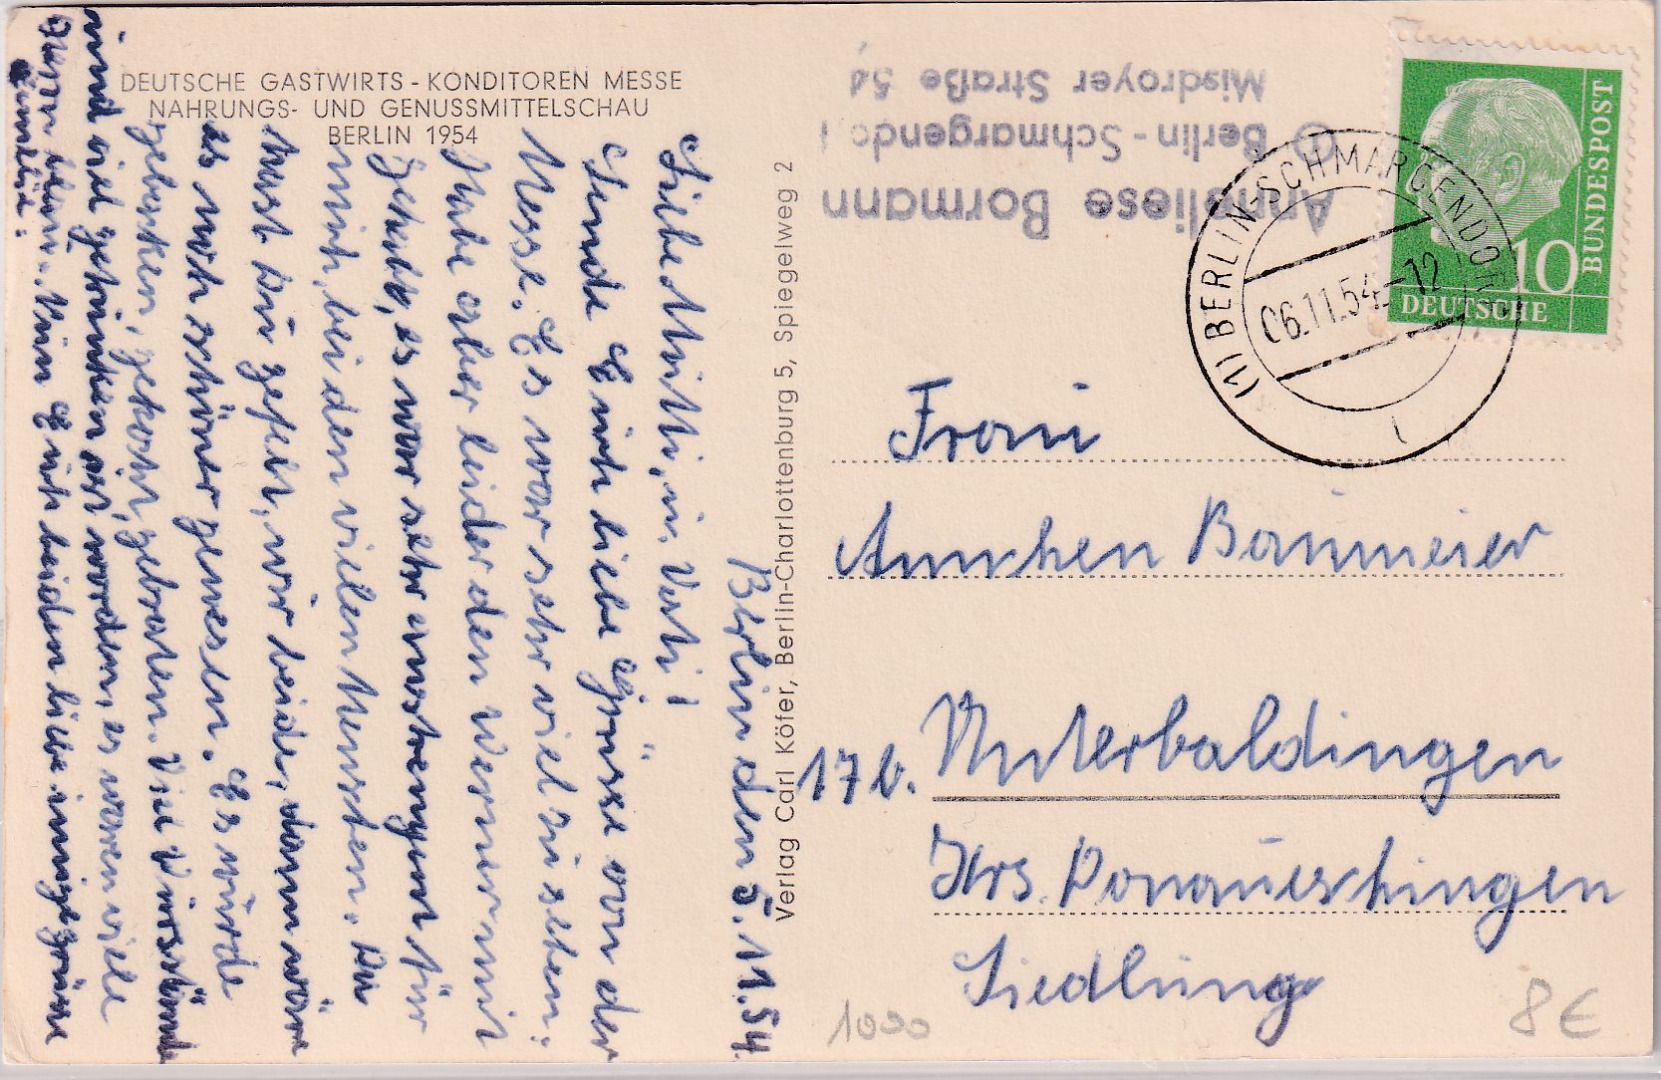 DEUTSCHE GASTWIRTS - KONDITOREN MESSE
NAHRUNGS- UND GENUSSMITTELSCHAU
BERLIN 1954
Berlin den 5.11.54.
Liebe Mutti, u. Vati!
Sende Euch liebe Grüsse von der
Messe. Es war sehr viel zu sehen.
Habe aber leider den Werner mit
gehabt, es war sehr anstrengent für
mich, bei den vielen Menschen. Du
hast nur gefehlt, wir beide, dann wäre
es noch schöner gewesen. Es würde
gebacken, gekocht, gebraten. Die Weinstände
und viel getrunken ist worden, es waren viele
Nun Euch beiden liebe innige grüsse
Verlag Carl Köfer, Berlin-Charlottenburg 5, Spiegelweg 2
Anneliese Bormann
Berlin - Schmargendo
Misdroyer Straße 54
(1) BERLIN-SCHMARGENDORF
06.11.54.-12
DEUTSCHE BUNDESPOST
10
Frau
Annchen Baumeier
17b. Unterbaldingen
Krs. Donaueschingen
Siedlung
1000
8€